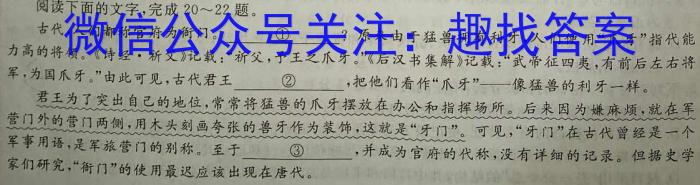 阅读下面的文字,完成20～22题。
微信公众号关注：趣找答案
古代 都称官府为衙门。 ① ？原来由于猛兽 有利牙,人们 用 牙”指代能
力高的将领。《诗经·祈父》记载：“祈父,予王之爪牙。”《后汉书集解》记载：“武帝征四夷,有前后左右将
军,为国爪牙。”由此可见,古代君王 ② ,把他们看作“爪牙”——像猛兽的利牙一样。
君王为了突出自己的地位,常常将猛兽的爪牙摆放在办公和指挥场所。后来因为嫌麻烦,就在军
营门外的营门两侧,用木头刻画夸张的兽牙作为装饰,这就是“牙门”。可见,“牙门”在古代曾经是一个
军事用语,是军旅营门的别称。至于 ③ ,并成为官府的代称,没有详细的记录。但据史学
家们研究,“衙门”的使用最迟应该出现在唐代。